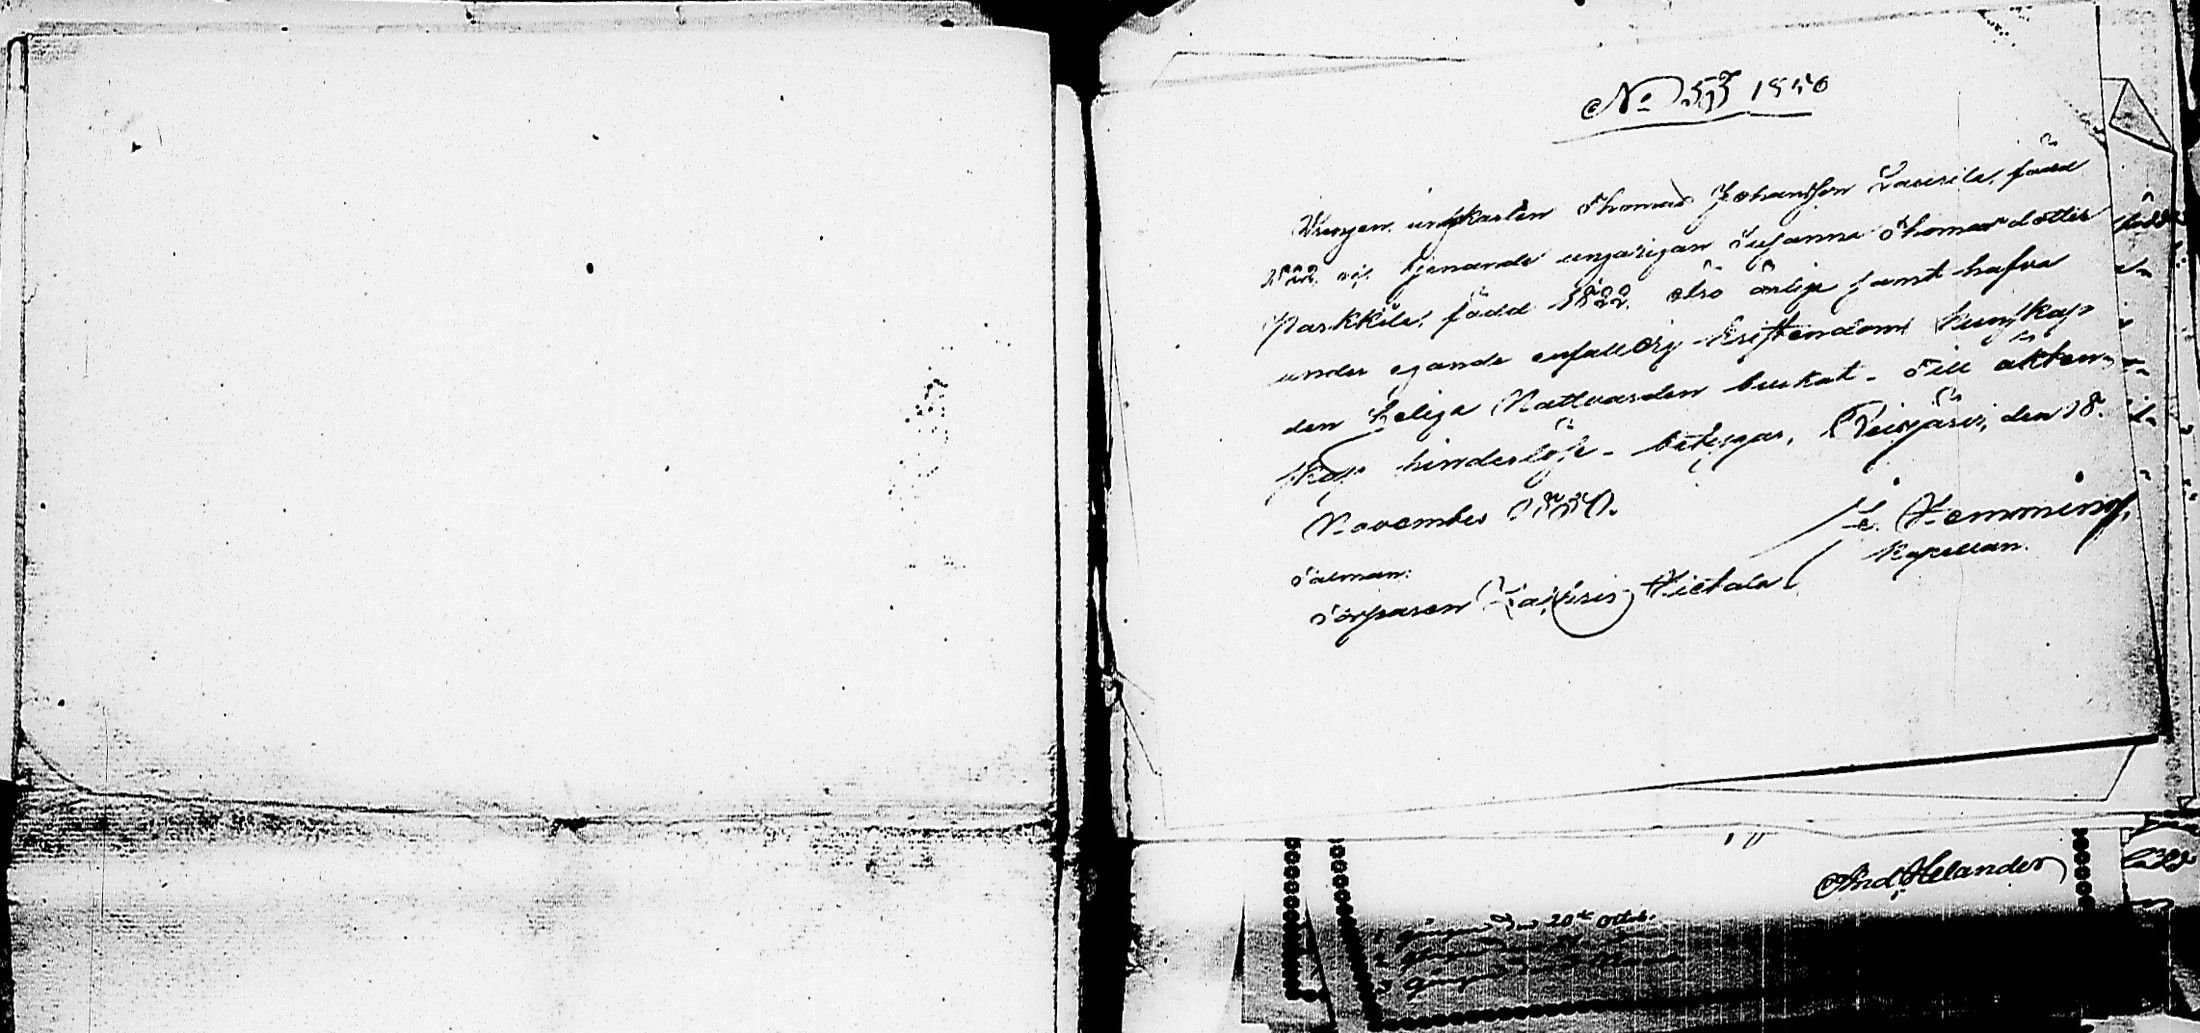 No 53 1850
Drengen ungkarlen Thomas Johansson Laurila, född
1822. och tjenande ungpigan Susanna Thomasdotter
Parkkila, född 1822. äro ärlige samt hafva
under egande enfalldig kristendoms kunskap
den heliga Nattvarden bevistat - till äkten-
skap hinderlöse - betygar, Reisjärvi, den 18.
November 1850.
Hemming,
Kapellan.
Talman:
Torparen Hietala
And. Helander
1 gången den 20de Octob.